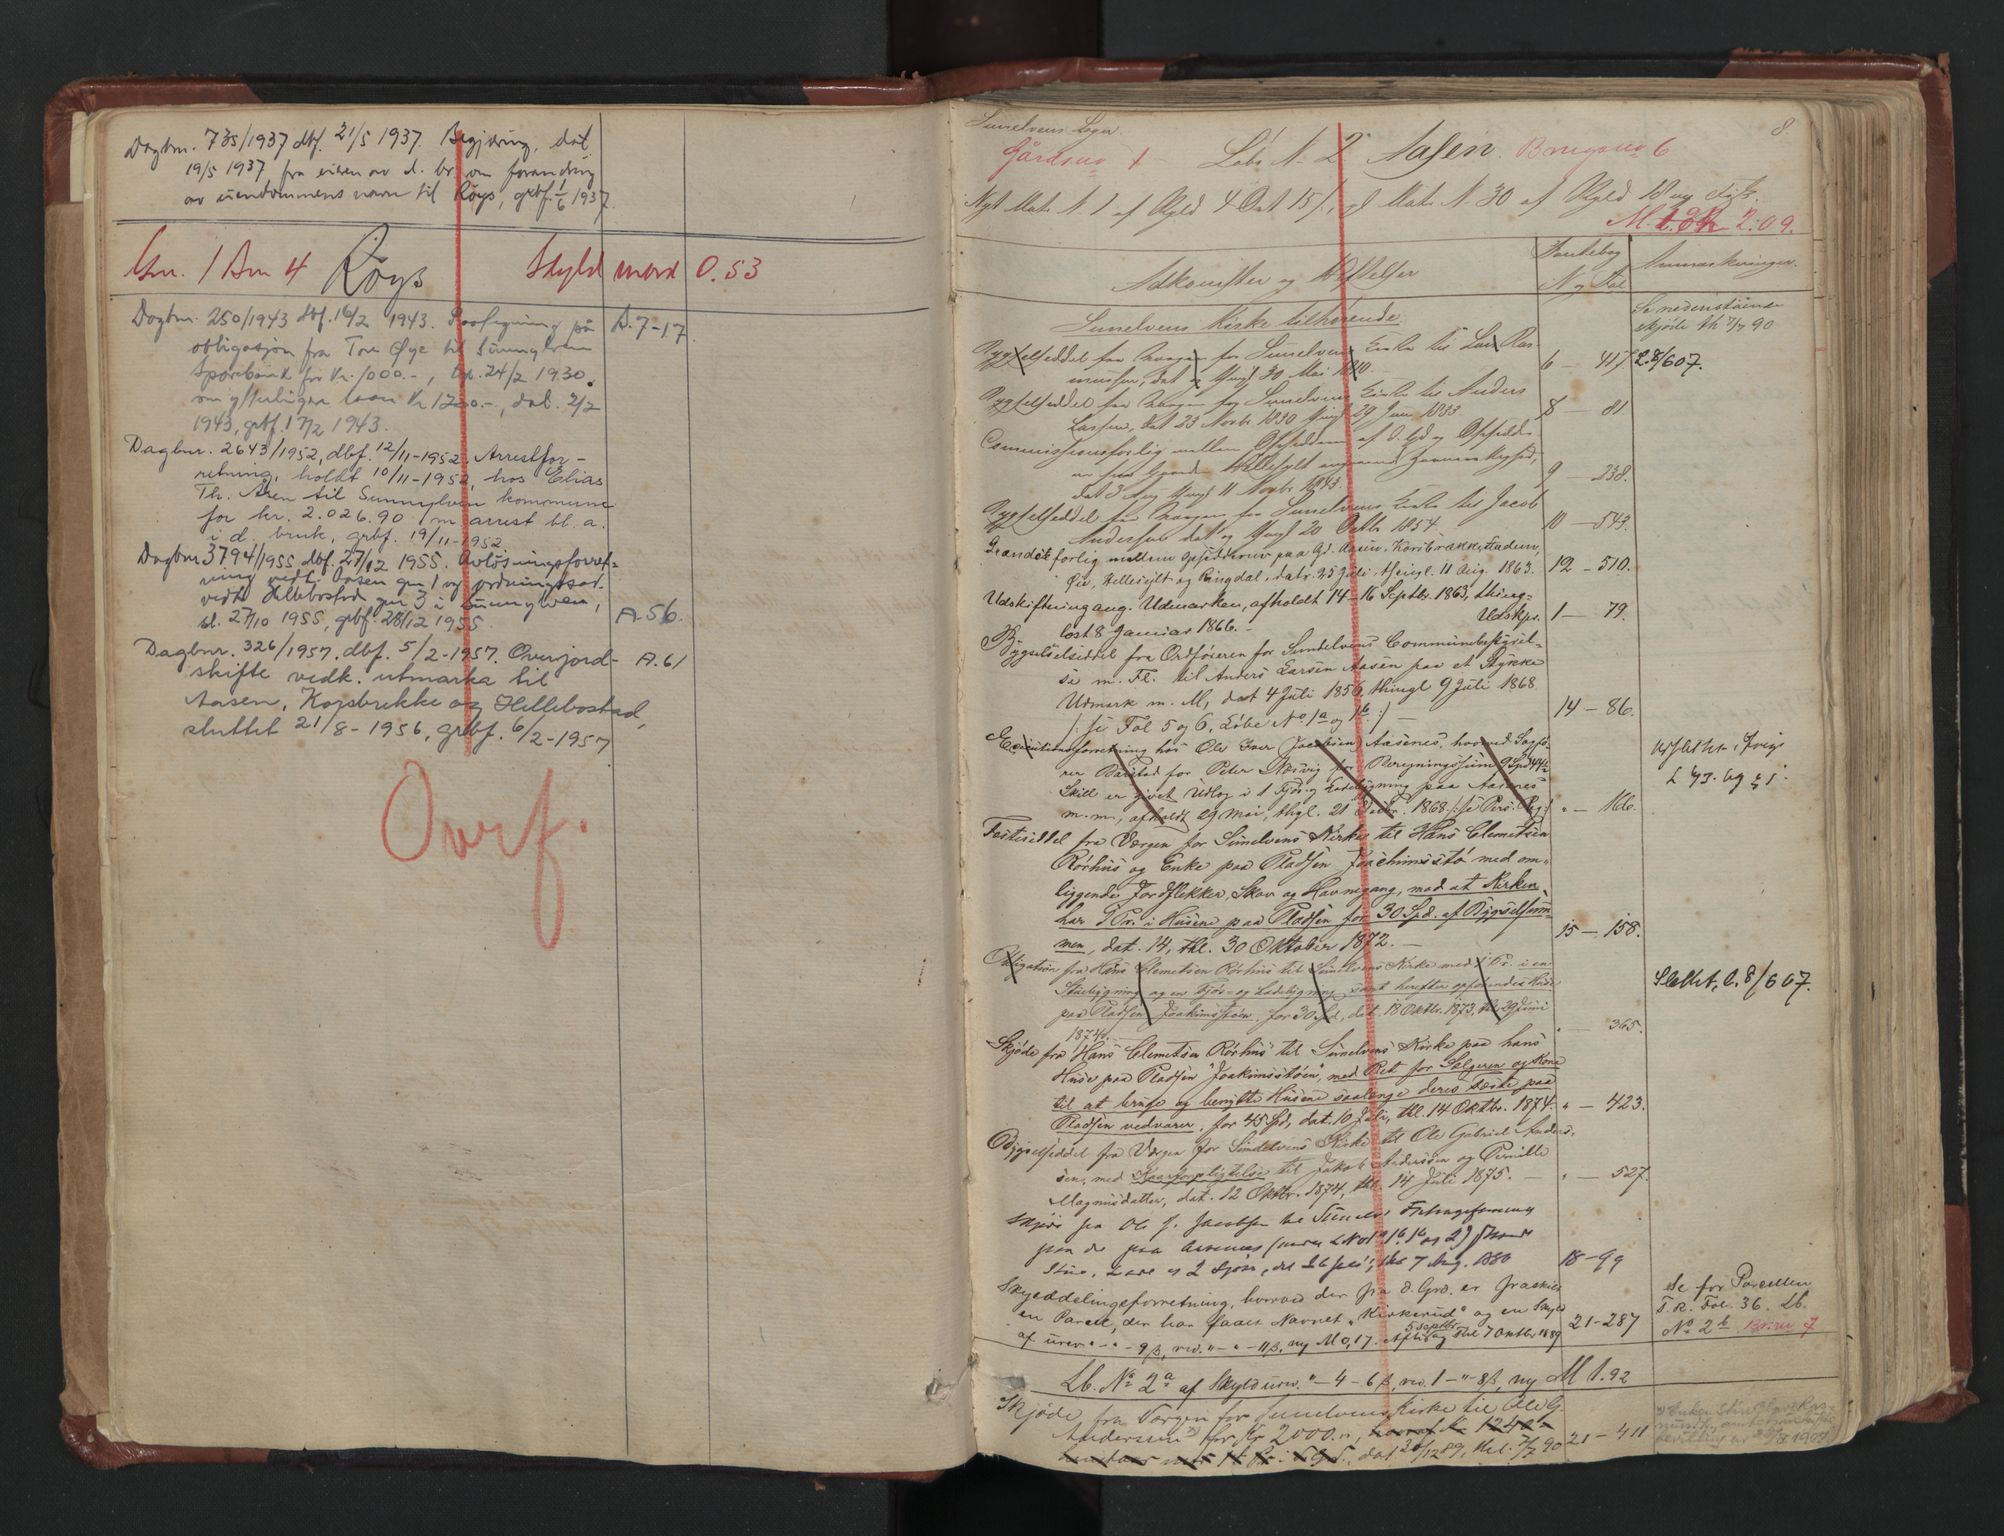 Dagbnr. 735/1937 dbf. 21/5 1937. Begjæring, dat.
19/5 1937, fra eieren av d. br. om forandring
av eiendommens navn til Røys, grbf. 1/6 1937.
Gnr. 1 Bnr 4 Røys Skyld mark 0.53
Dagbnr. 250/1943 dbf. 16/2 1943. Paategning på A. 7-17
obligasjon fra Tore Øye til Sunnylven
Sparebank for kr. 1000.-, tgl. 24/2 1930.
om ytterligere laan kr. -, dat. 2/2
1943, grbf. 17/2 1943.
Dagbnr. 2643/1952, dbf. 12/11-1952. Arrestfor-
retning, holdt 10/11-1952, hos Elias
Th. Åsen til Sunnylven kommune
for kr. 2.026.90 m/arrest bl. a.
i d. bruk, grbf. 19/11-1952
Dagbnr. 3794/1955 dbf. 27/12 1955. Avløsningsforret-
ning vedk. Aasen gnr 1 og
vedk Hellebostad gnr 3 i Sunnylven,
sl. 27/10 1955, grbf. 28/12 1955. A. 56.
Dagbnr. 326/1957, dbf. 5/2-1957. Overjord- A. 61
skifte vedk. utmarka til
Aasen, Korsbrekke og Hellebostad,
sluttet 21/8-1956, grbf. 6/2-1957
Overf.
Sunelvens Sogn. 8.
Gårdsno 1 - Løbe N. 2. Aasen. Brugsno 6
Nyt Mat. N. 1 af Skyld 4 Ort 15 /, gl. Mat. N. 30 af Skyld
M. 2.09.
Adkomster og Hæftelser Pantebog N og Fol Anmærkninger.
Sunelvens Kirke tilhørende. Se nedenstaaende
skjøde th 7/7 90
Bygselseddel fra Værgen for Sunelvens Kirke til Lars Ras- 6 - 417 L. 8/607.
mussen, dat. og thingl 30 Mai 1810.
Bygselseddel fra Værgen for Sunelvens Kirke til Anders 8 - 81
Larsen, dat 23 Novbr 1830 thingl 29 Juni 1833
Commissionsforlig mellem Opsidderne af d. Gd og Opsidde
paa Gaarden Hellesylt angaaende 9 - 238.
dat 3 Aug thingl 11 Novbr. 1843.
Bygselseddel fra Værgen for Sunelvens Kirke til Jacob 10 - 543.
Andersen dat og thingl 20 Octbr 1854.
Grændseforlig mellem Opsidderne paa Gd. Aasen, Korsbrække,
Øie, Hellesylt og Ringdal, datr. 25 Juli, thingl. 11 Aug. 1863. 12 - 510.
Udskiftning ang. Udmarken, afholdt 14-16 Septbr. 1863, thing-
læst 8 Januar 1866. - Udskpr. 1 - 79.
Bygselseddel fra Ordføreren for Sunelvens Communebestyrel-
se m. Fl. til Anders Larsen Aasen paa et Stykke
Udmark m. M, dat 4 Juli 1856, thingl 9 Juli 1868
/: se Fol 5 og 6, Løbe No. 1a og 1b :/ - 14 - 86.
Executionsforretning hos Ole Iver Jacobsen Aasenes, hvorved Sagfø- Udslettet
rer Barstad for Peter Næsvig for Beregningssum 9 Spd
Skill er givet Udlæg i 1 Fjøs og Ladebygning paa Aasenes
m. m., afholdt 29 Mai, thgl. 21 Decbr. 1868 /: se Pers. Reg :/ " - 166.
Festeseddel fra Værgen for Sunelvens Kirke til Hans Clemetsen
Rørhus og Enke paa Pladsen Joachimsstø med om-
liggende Jordflekker, Skov og Havnegang, mod at Kirken
har 1 Pr. i Husene paa Pladsen for 30 Spd. af Bygselsum-
men, dat. 14, thl. 30 Oktober 1872. - 15 - 158.
Obligation fra Hans Clemetsen Rørhus til Sunelvens Kirke med 1 Pr. i en Slettet, L. 8/607.
Stuebygning og en Fjøs- og Ladebygning samt herefter opførendes Huse
paa Pladsen Joakimsstøen, for 30 Spd, dat. 18 Oktbr. 1873, thl 29 Juni
1874. " - 365.
Skjøde fra Hans Clemetsen Rørhus til Sunelvens Kirke paa hans
Huse paa Pladsen "Joakimsstøen", med Ret for Sælgeren og Kone
til at bruge og benytte Husene saalænge deres Fæste paa
Pladsen vedvarer, for 45 Spd, dat. 10 Juli, thl. 14 Oktbr. 1874. " - 423.
Bygselseddel fra Værgen for Sunelvens Kirke til Ole Gabriel Anders-
sen, med Kaarforpligtelse til Jakob Anderssen og Pernille
Magnusdatter, dat. 12 Oktbr. 1874, thl. 14 Juli 1875. - " - 527.
Skjøde fra Ole J. Jacobsen til Sunelvs
paa de paa Aasenes
Stue, Lade og 2 Fjøse, thl 7 Aug. 1880 18-99
Skylddelingsforretning, hvorved der fra d. Grd. er fraskilt Se for Parcellen
en Parcel, der har faaet Navnet "Kirkerud" og en Skyld 21-287 P. R. Fol. 36. Lb.
af urev. " - " - 9 β, rev. " - " - 11 β, ny M 0,17. Afh 5 Septbr. og thl 7 Oktbr 1889 No 2b Br. nr 7
Lb. No 2a af Skyld urev. " - 4 - 6 β, rev. 1 - " - 8 β, ny M 1.92
Skjøde fra Værgen for Sunelvens Kirke til Ole G.
Anderssen for Kr 2000.", hvoraf Kr 1240.- 21 - 411
dat 1289, thl. 7/7 90